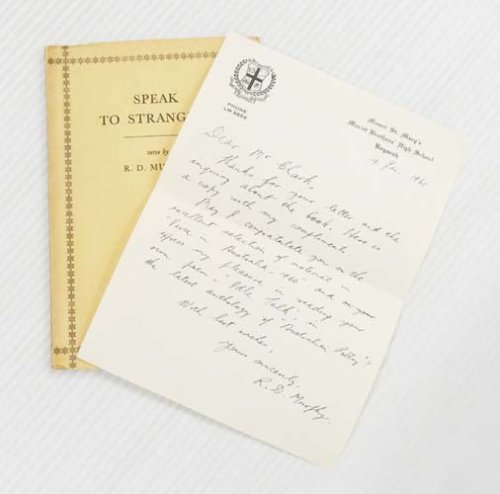 SPEAK
TO STRANG
verse by
R. D. MU
PHONE
LW
Mount St. Mary's
Marist Brothers' High School
Bogarah
1961
Dear Mr Clark,
Thanks for your letter and the
enquiry about the book. Here is
a copy with my compliments.
May I congratulate you on the
excellent selection of material in
Verse in Australia, 1960 and on your
my pleasure in reading your
own poem "Idle Talk" in
the latest anthology of Australian Poetry";
With best wishes,
Yours sincerely,
R. D. Murphy.